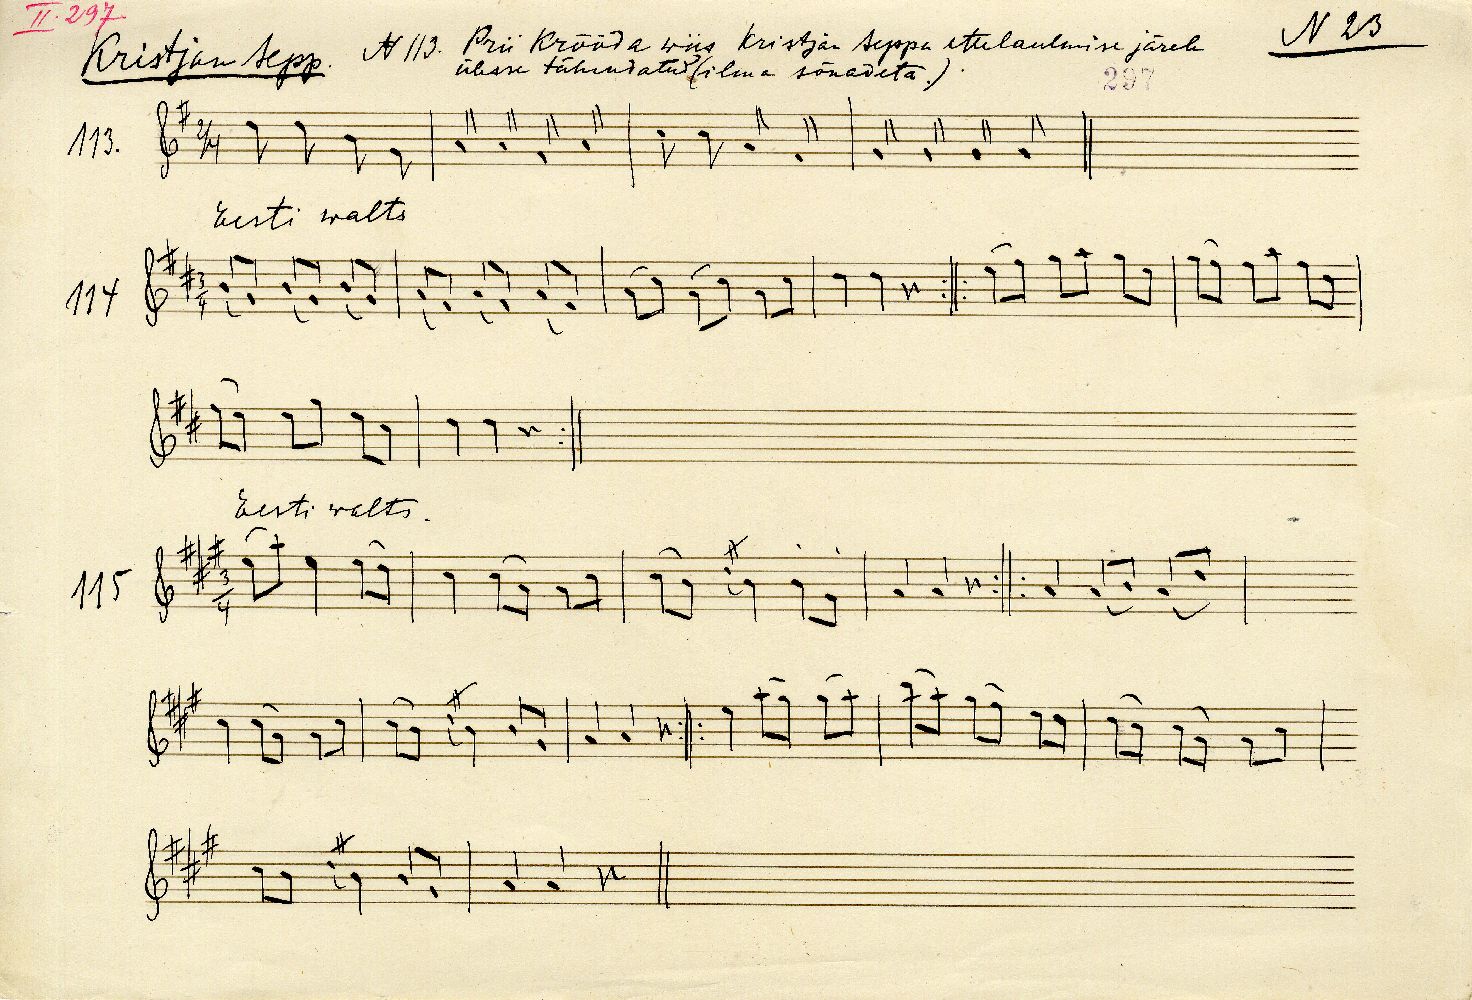 II. 297
Kristjan Sepp. N 113. Prii Krööda wiis Kristjan Seppa ettelaulmise järele N 23
ülesse tähendatud (ilma sõnadeta.)
297
113. 2/4
Eesti walts
114 3/4
Eesti walts.
115 3/4